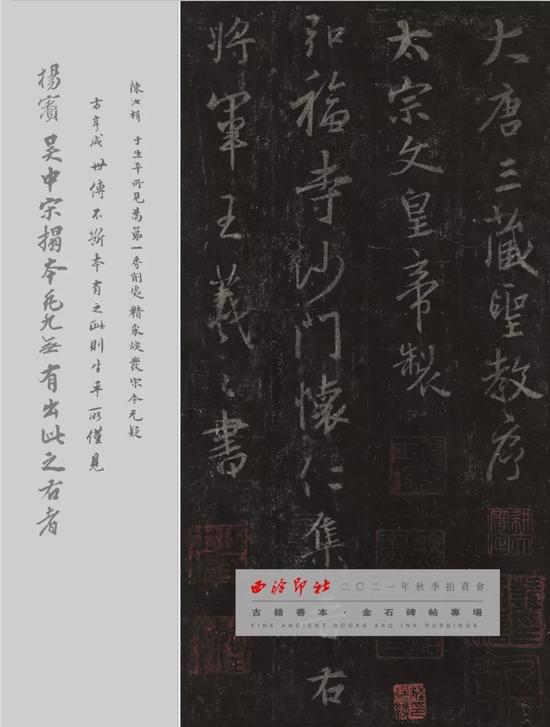 大唐三藏聖教序
太宗文皇帝製
弘福寺沙門懷仁集晉右
將軍王羲之書
西泠印社 二〇二一年秋季拍賣會
古籍善本·金石碑帖專場
FINE ANCIENT BOOKS AND INK RUBBINGS
陳汝楫 于生平所見為第一 香削處精采煥發宋本无疑
方亨咸 世傳不斷本有之此則生平所僅見
楊賓 吳中宋搨本凡九無有出此之右者